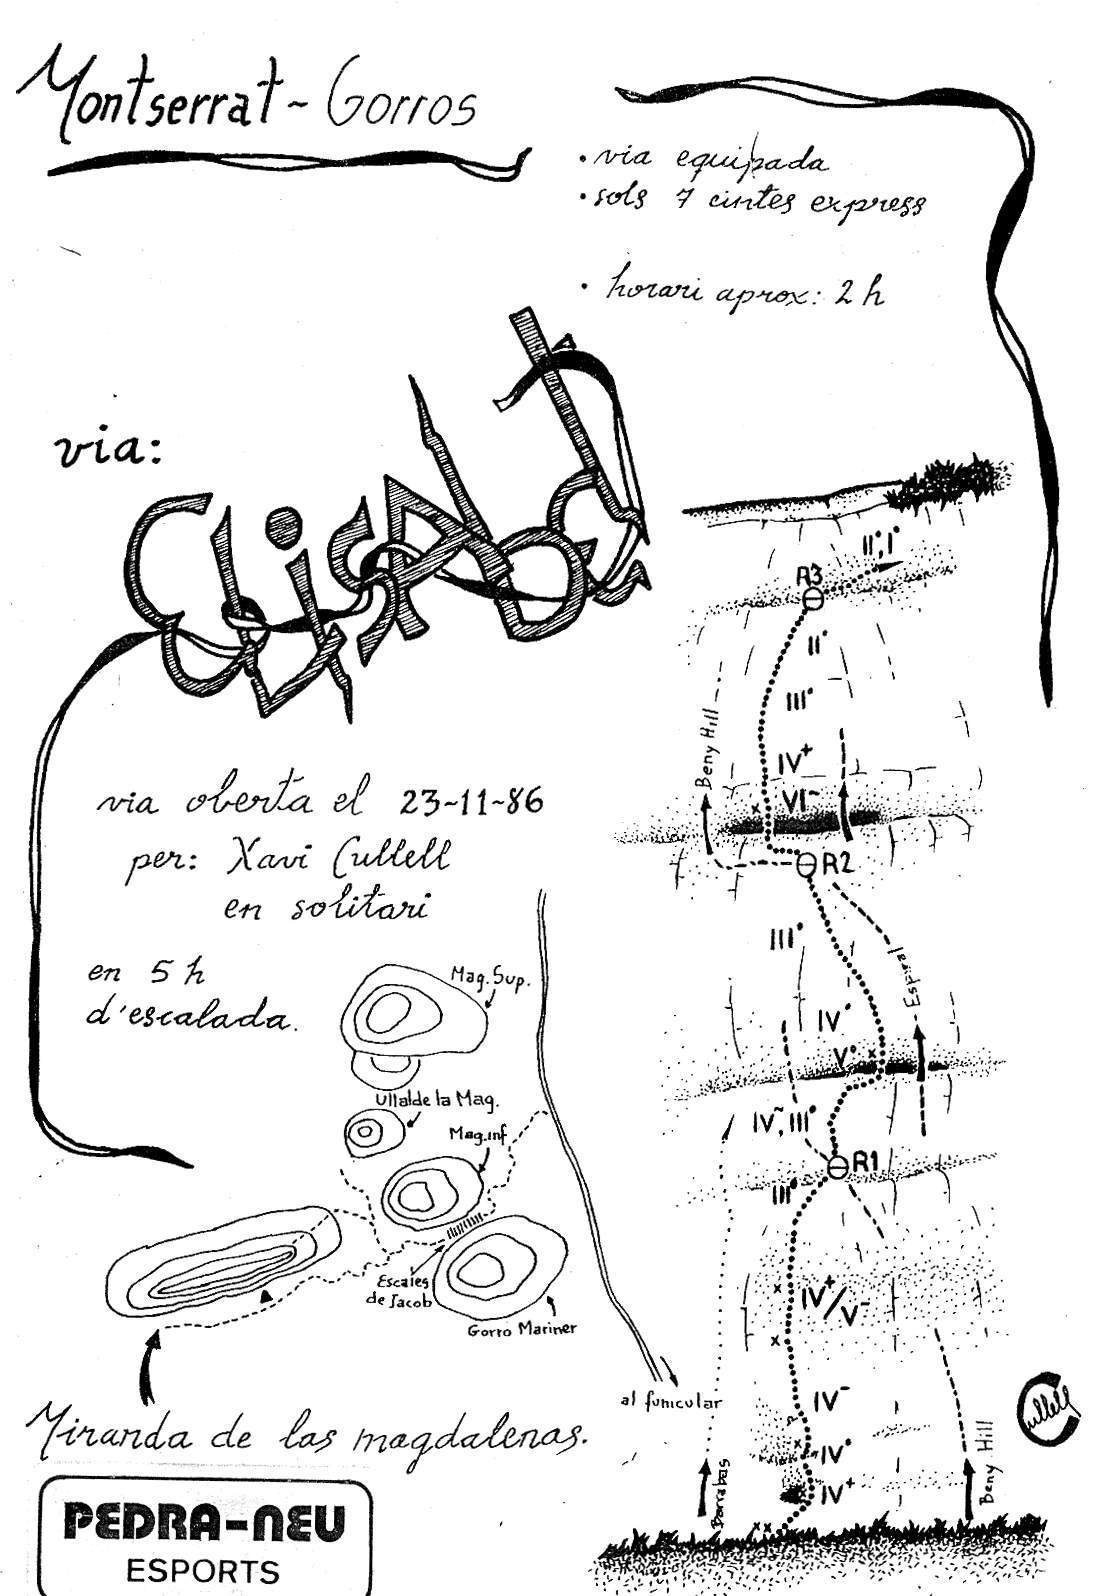 Montserrat ~ Gorros
• via equipada
• sols 7 cintes express
• horari aprox: 2 h
via:
ELISABET
via oberta el 23-11-86
per: Xavi Cullell
en solitari
en 5 h
d'escalada.
Mag. Sup.
Ullal de la Mag.
Mag. inf
Escales
de Jacob
Gorro Mariner
al funicular
Miranda de las magdalenas.
PEDRA-NEU
ESPORTS
II°, I°
R3
II°
III°
IV+
VI-
Beny Hill
R2
III°
Espiral
IV°
V°
IV-, III°
R1
III°
IV+/V-
IV-
IV°
IV+
Barrabas
Beny Hill
Cullell